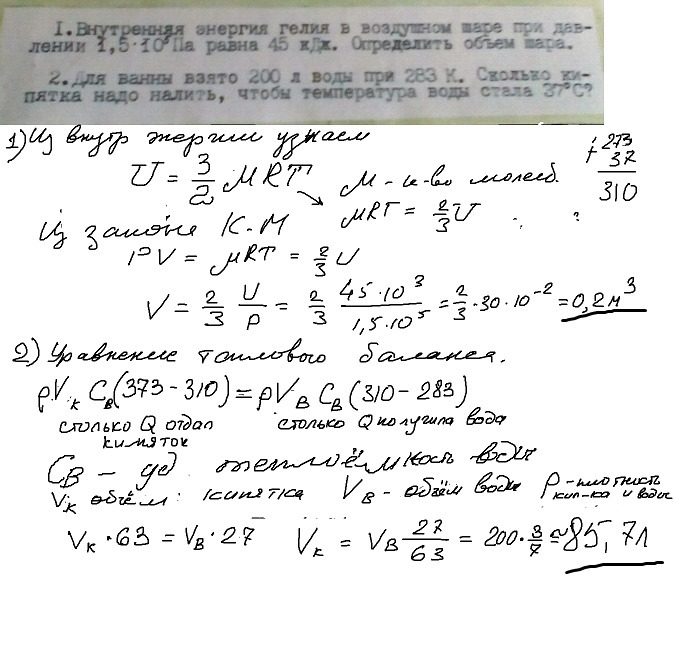 1. Внутренняя энергия гелия в воздушном шаре при дав-
лении 1,5·10⁵Па равна 45 кДж. Определить объем шара.
2. Для ванны взято 200 л воды при 283 К. Сколько ки-
пятка надо налить, чтобы температура воды стала 37°С?
1) Из внутр энергии узнаем
U = 3/2 μRT
μ - к-во молей.
μRT = 2/3 U
+ 273
37
310
?
Из закона К-М
PV = μRT = 2/3 U
V = 2/3 U/P = 2/3 45·10³/1,5·10⁵ = 2/3·30·10⁻² = 0,2 м³
2) Уравнение теплового баланса.
ρVк Cв(373-310) = ρVв Cв(310-283)
столько Q отдал кипяток
столько Q получила вода
Cв - уд теплоёмкость воды
Vк объём кипятка Vв - объём воды ρ - плотность кип-ка и воды
Vк·63 = Vв·27 Vк = Vв 27/63 = 200·3/7 ≈ 85,7л